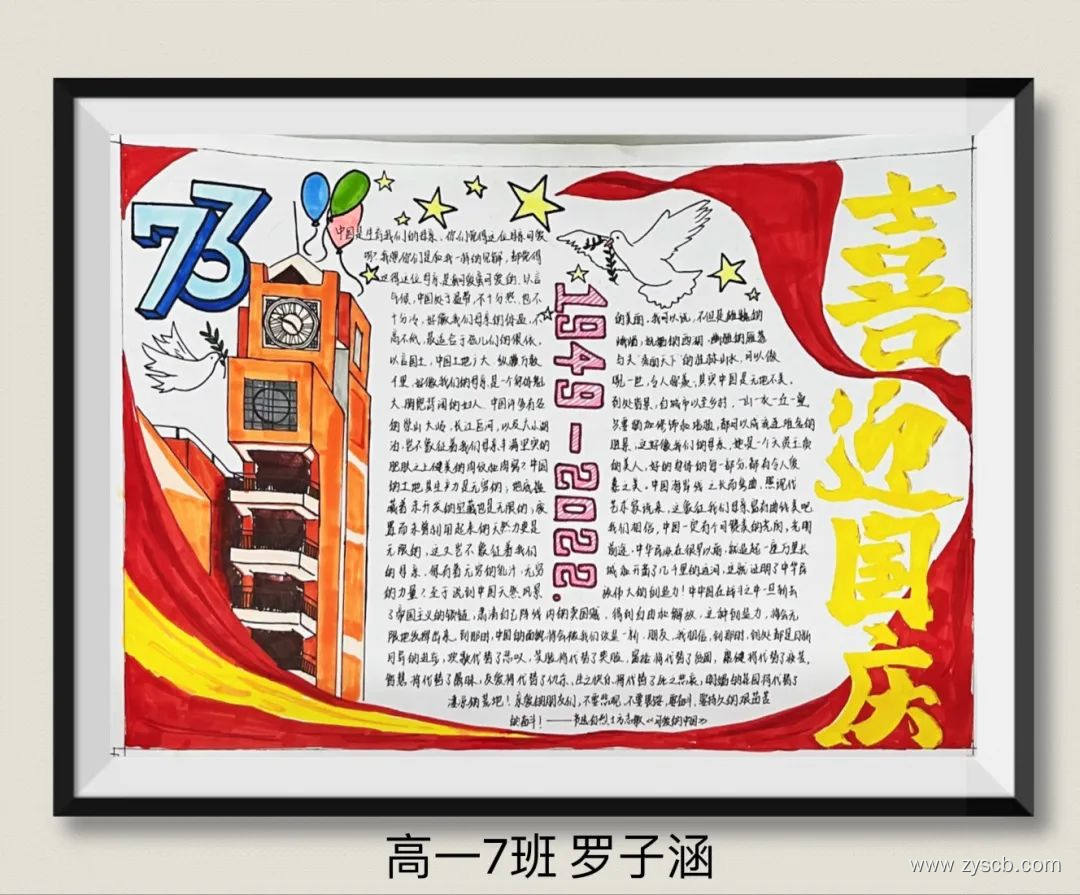 73
喜迎国庆
1949-2022.
中国是生育我们的母亲。你们觉得这位母亲可爱
吗?我想你们是和我一样的见解,都觉得
这位母亲是蛮可爱蛮可爱的。以言
气候,中国处于温带,不十分热,也不
十分冷,好像我们母亲的体温,不
高不低,最适宜于孩儿们的偎依。
以言国土,中国土地广大,纵横万数
千里,好像我们的母亲是一个身体魁
大、胸宽背阔的妇人
中国许多有名
的崇山大岭,长江巨河,以及大小湖
泊,岂不象征着我们母亲丰满坚实的
肥肤上之健美的肉纹和肉窝?中国
的土地其生产力是无穷的;地底蕴
藏着未开发的宝藏也是无限的;废
置而未曾利用起来的天然力更是
无限的,这又岂不象征着我们
的母亲,保有着无穷的乳汁,无穷
的力量?至于说到中国天然风景
的美丽,我可以说,不但是雄巍的
峨嵋,妩媚的西湖,幽雅的雁荡
与夫“秀丽甲天下”的桂林山水,可以傲
睨一世,令人称羡;其实中国是无地不美,
到处皆景,自城市以至乡村,一山一水,一丘一壑,
只要稍加修饰和培植,都可以成流连难舍的
胜景;这好像我们的母亲,她是一个天资玉质
的美人,她的身体的每一部分,都有令人爱
慕之美。中国海岸线之长而弯曲,照现代
艺术家说来,这象征我们母亲富有曲线美吧
我们相信,中国一定有个可赞美的光明
前途。中华民族在很早以前,就造起了一座万里长
城和开凿了几千里的运河,这就证明了中华民
族伟大的创造力!中国在战斗之中一旦斩去
了帝国主义的锁链,肃清自己阵线内的卖国贼,得到自由和解放,这种创造力,将会无
限地发挥出来。到那时,中国的面貌将会被我们改造一新。朋友,我相信,到那时,到处都是日新
月异的进步,欢歌代替了悲叹,笑脸将代替了哭脸,富裕将代替了贫困,康健将代替了疾苦,
智慧将代替了愚昧,友爱将代替了仇杀,生之快乐将代替了死之悲哀,明媚的花园将代替了
凄凉的荒地!亲爱的朋友们,不要悲观,不要畏馁,要奋斗!要持久的艰苦
的奋斗!——方志敏《可爱的中国》
高一7班 罗子涵
www.zyscb.com